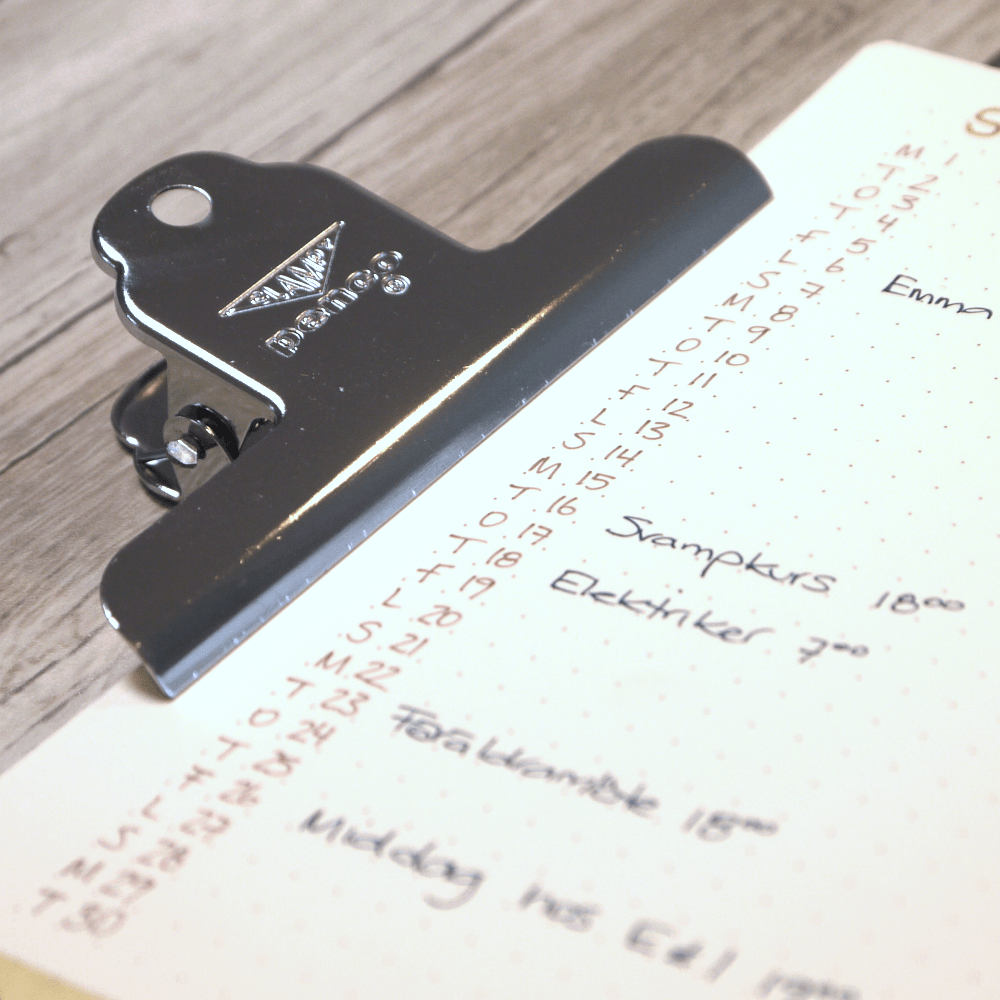 CLAMPY
penco
®
S
M 1
T 2
O 3
T 4
F 5
L 6 Emma
S 7
M 8
T 9
O 10
T 11
F 12
L 13
S 14
M 15
T 16 Svampkurs 18⁰⁰
O 17
T 18 Elektriker 7⁰⁰
F 19
L 20
S 21
M 22
T 23 Föräldramöte 18⁰⁰
O 24
T 25
F 26 Middag hos
L 27
S 28
M 29
T 30